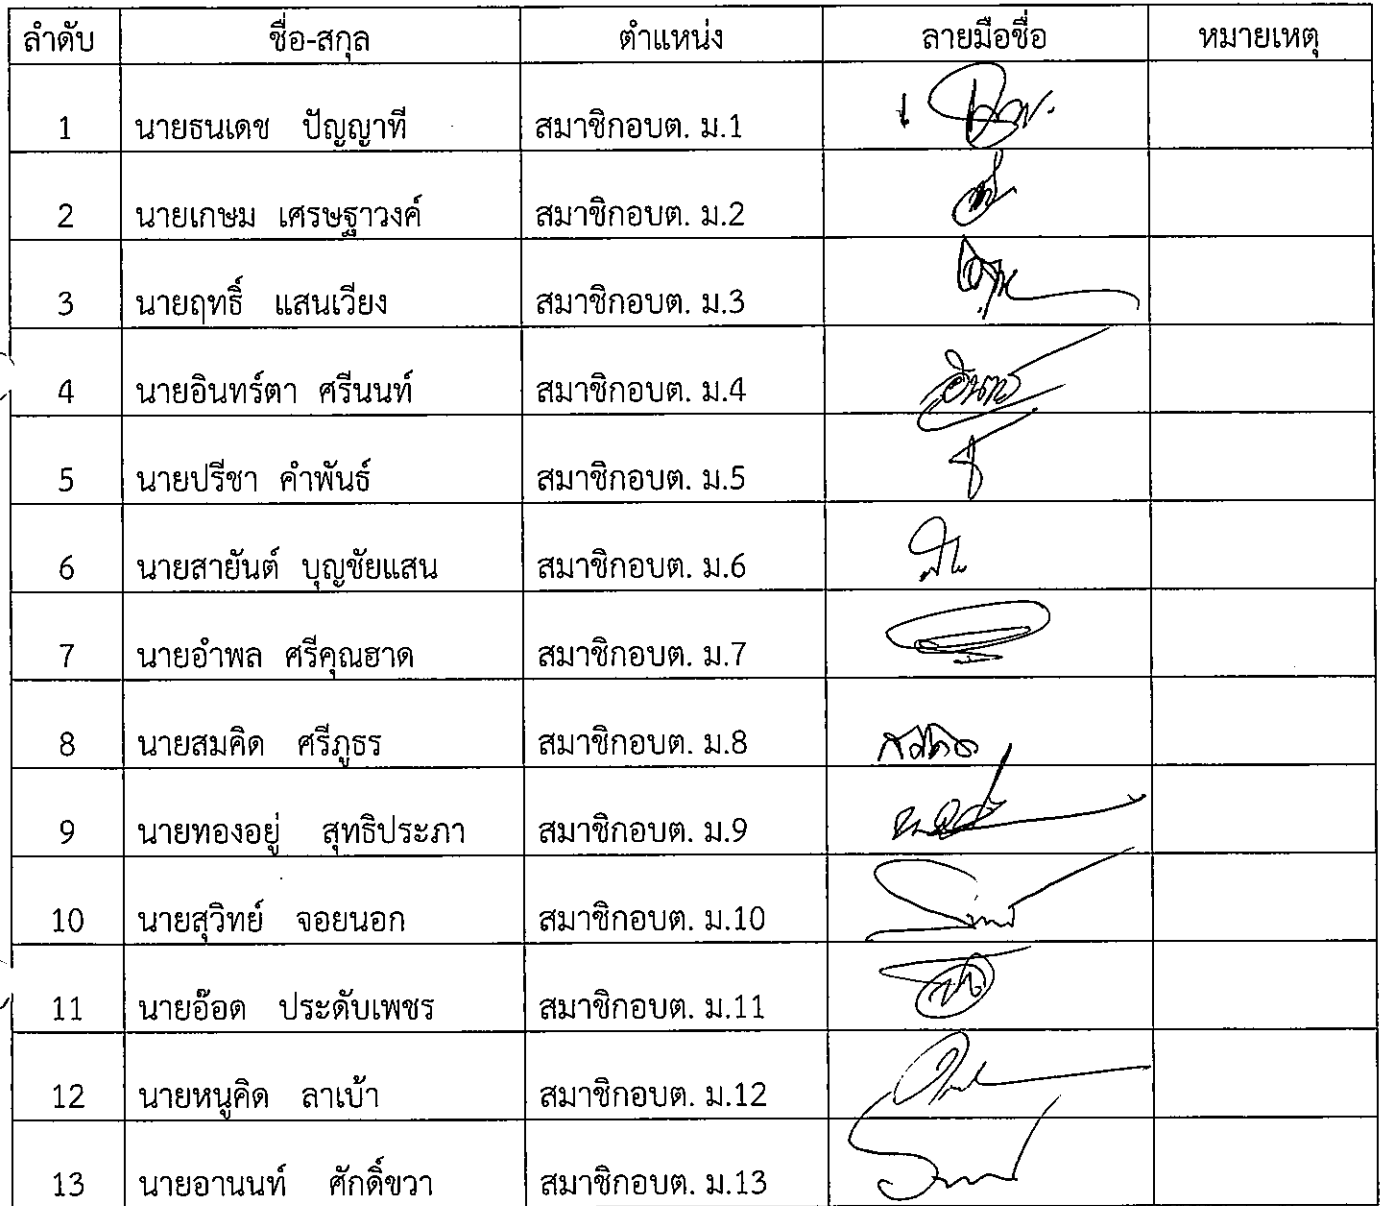 ลำดับ ชื่อ-สกุล ตำแหน่ง ลายมือชื่อ หมายเหตุ
1 นายธนเดช ปัญญาที สมาชิกอบต. ม.1
2 นายเกษม เศรษฐาวงค์ สมาชิกอบต. ม.2
3 นายฤทธิ์ แสนเวียง สมาชิกอบต. ม.3
4 นายอินทร์ตา ศรีนนท์ สมาชิกอบต. ม.4
5 นายปรีชา คำพันธ์ สมาชิกอบต. ม.5
6 นายสายันต์ บุญชัยแสน สมาชิกอบต. ม.6
7 นายอำพล ศรีคุณฮาด สมาชิกอบต. ม.7
8 นายสมคิด ศรีภูธร สมาชิกอบต. ม.8
9 นายทองอยู่ สุทธิประภา สมาชิกอบต. ม.9
10 นายสุวิทย์ จอยนอก สมาชิกอบต. ม.10
11 นายอ๊อด ประดับเพชร สมาชิกอบต. ม.11
12 นายหนูคิด ลาเบ้า สมาชิกอบต. ม.12
13 นายอานนท์ ศักดิ์ขวา สมาชิกอบต. ม.13